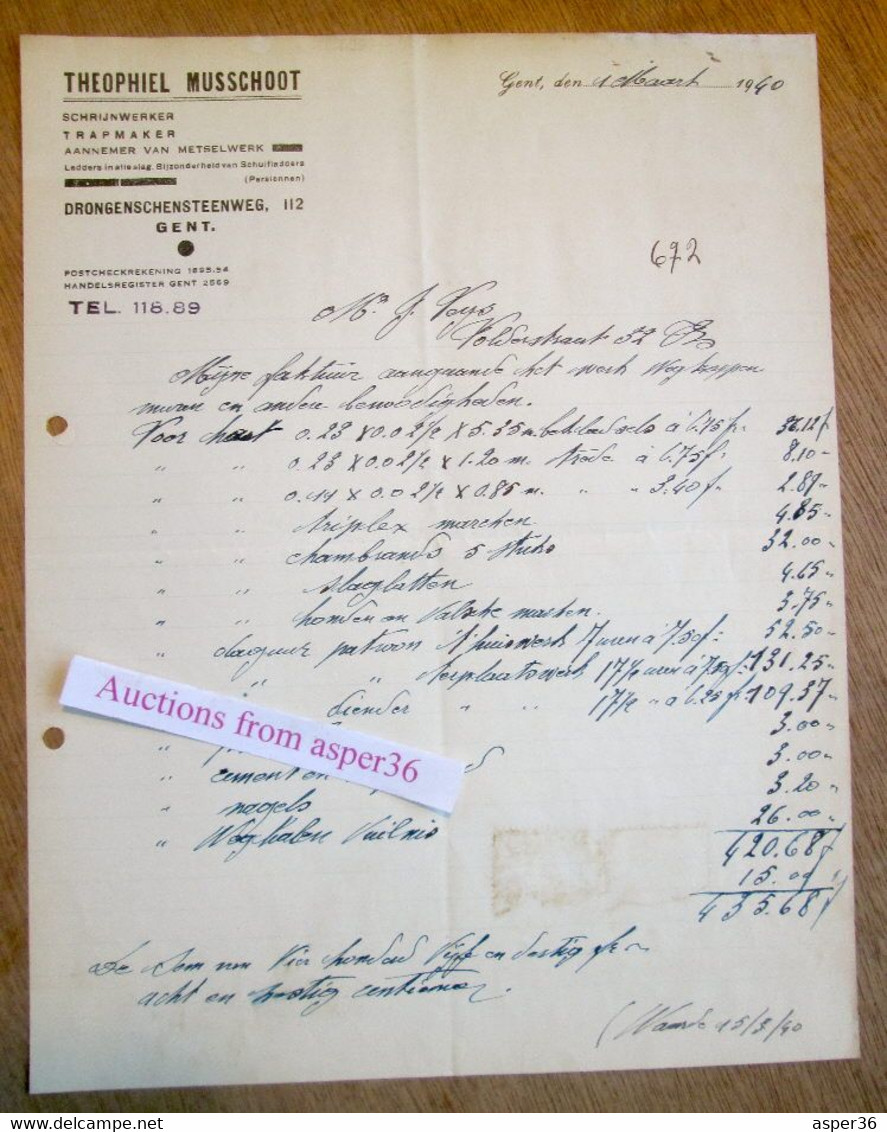 THEOPHIEL MUSSCHOOT
Gent, den 1 Maart 1940
SCHRIJNWERKER
TRAPMAKER
AANNEMER VAN METSELWERK
Ladders in alle slag. Bijzonderheid van Schuifladders
(Persionnen)
DRONGENSCHENSTEENWEG, 112
GENT.
672
POSTCHECKREKENING 1895.94
HANDELSREGISTER GENT 2569
TEL. 118.89
Mr J. Voys
Volderstraat 32
Mijne faktuur aangaande het werk wegkappen
muren en andere benoodigheden.
Voor hout 0.23 x 0.0 2 1/2 x 5.35 m. à 6.75 fr. 36.12 f
" " 0.23 x 0.0 2 1/2 x 1.20 m. trede à 6.75 f. 8.10 "
" " 0.14 x 0.0 2 1/2 x 0.85 m. " " 3.40 f. 2.89 "
" " triplex marchen 4.85 "
" " chambrands 5 stuks 32.00 "
" " slaglatten 4.65 "
" " en valsche 3.75 "
" daguur patroon t'huiswerk 7 uren à 7.50 f. 52.50 "
" " terplaatswerk 17 1/2 uren à 7.50 f. 131.25 "
diender " " 17 1/2 " à 6.25 f. 109.37 "
3.00 "
" cement en 3.00 "
" nagels 3.20 "
" Weghalen Vuilnis 26.00 "
420.68 f
15.00 "
435.68 f
De Som van Vier honderd Vijf en dertig fr
acht en zestig centiemen.
15/3/40
Auctions from asper36
asper36